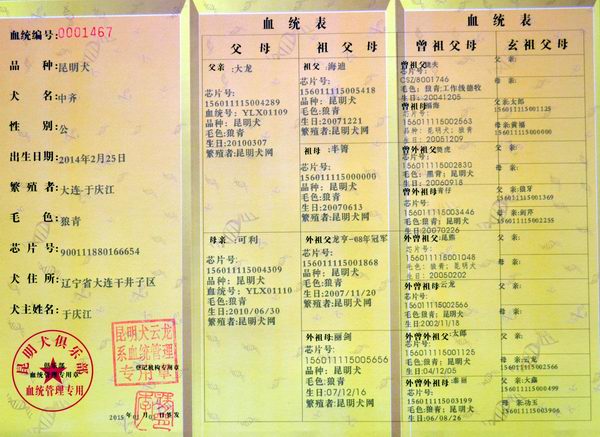 血统编号:0001467
品种:昆明犬
犬名:中齐
性别:公
出生日期:2014年2月25日
繁殖者:大连-于庆江
毛色:狼青
芯片号:900111880166654
犬住所:辽宁省大连干井子区
犬主姓名:于庆江
昆明犬俱乐部
血统管理专用章
血统管理专用
昆明犬云龙
系血统管理
专用章
登记机构专用章
血统表
父母
祖父母
父亲:大龙
芯片号:
156011115004289
血统号:YLX01109
品种:昆明犬
毛色:狼青
生日:20100307
繁殖者:昆明犬网
母亲:可利
芯片号:
156011115004309
血统号:YLX01110
品种:昆明犬
毛色:狼青
生日:2010/06/30
繁殖者:昆明犬网
祖父:海迪
芯片号:
156011115005418
品种:昆明犬
毛色:狼青
生日:20071221
繁殖者:昆明犬网
祖母:半筹
芯片号:
156011115000000
品种:昆明犬
毛色:狼青
生日:20070613
繁殖者:昆明犬网
外祖父:龙亨-08年冠军
芯片号:
156011115001868
品种:昆明犬
毛色:狼青
生日:2007/11/20
繁殖者:昆明犬网
外祖母:丽剑
芯片号:
156011115005656
品种:昆明犬
毛色:狼青
生日:07/12/16
繁殖者:昆明犬网
血统表
曾祖父母
玄祖父母
曾祖父:
芯片号:
CSZ/8001746
毛色:狼青:工作线德牧
生日:20041205
曾祖母:
芯片号:
156011115002563
品种:昆明犬;狼青
生日:20051209
曾外祖父:
芯片号:
156011115002830
毛色:黑背;昆明犬
生日:20060918
曾外祖母:
芯片号:
156011115003446
毛色:狼青;昆明犬
生日:20070226
外曾祖父:
芯片号:
156011115001048
毛色:狼青;昆明犬
生日:20050202
外曾祖母:
芯片号:
156011115002566
毛色:狼青;昆明犬
生日:2002/11/18
外曾外祖父:太郎
芯片号:
156011115001125
毛色:狼青;昆明犬
生日:04/12/05
外曾外祖母:
芯片号:
156011115003199
毛色:狼青;昆明犬
生日:06/08/26
父亲:
母亲:
父亲:太郎
156011115001125
母亲:黄福
156011115000000
父亲:
母亲:
父亲:狼牙
156011115001369
母亲:
父亲:
母亲:
父亲:
母亲:
父亲:
母亲:云龙
父亲:大鑫
母亲:功玉